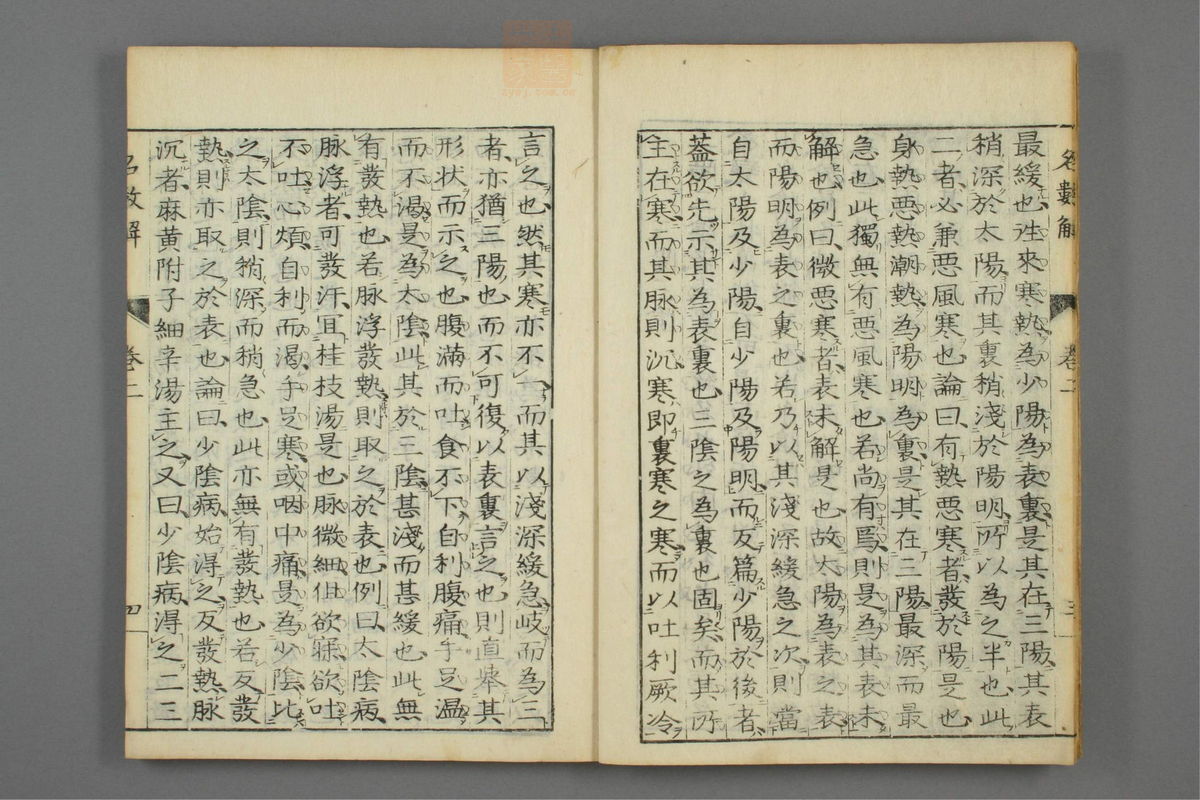 名數解 卷二 三
最緩也往來寒熱為少陽為表裏是其在三陽其表
稍深於太陽而其裏稍淺於陽明所以為之半也此
二者必兼惡風寒也論曰有熱惡寒者發於陽是也
身熱惡熱潮熱為陽明為裏是其在三陽最深而最
急也此獨無有惡風寒也若尚有焉則是為其表未
解也例曰微惡寒者表未解是也故太陽為表之表
而陽明為表之裏也若乃以其淺深緩急之次則當
自太陽及少陽自少陽及陽明而反篇少陽於後者
蓋欲先示其為表裏也三陰之為裏也固矣而其所
主在寒而其脉則沉寒即裏寒之寒而以吐利厥冷
言之也然其寒亦不一而其以淺深緩急岐而為三
者亦猶三陽也而不可復以表裏言之也則直舉其
形状而示之也腹滿而吐食不下自利腹痛手足溫
而不渴是為太陰此其於三陰甚淺而甚緩也此無
有發熱也若脉浮發熱則取之於表也例曰太陰病
脉浮者可發汗宜桂枝湯是也脉微細但欲寐欲吐
不吐心煩自利而渴手足寒或咽中痛是為少陰比
之太陰則稍深而稍急也此亦無有發熱也若反發
熱則亦取之於表也論曰少陰病始得之反發熱脉
沉者麻黃附子細辛湯主之又曰少陰病得之二三
名數解 卷二 四